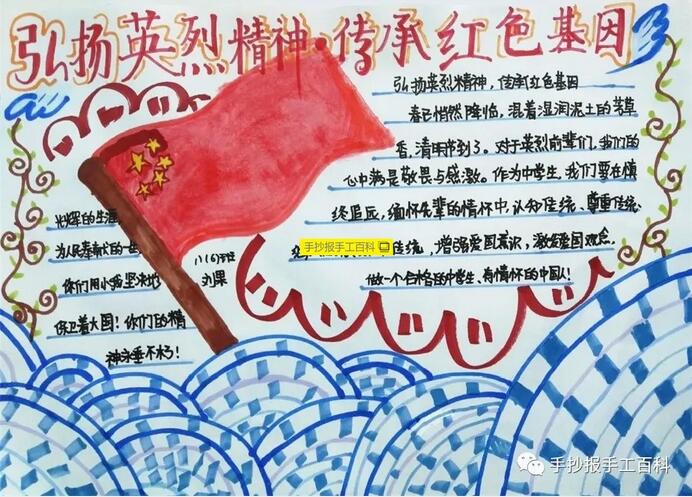 弘扬英烈精神·传承红色基因
弘扬英烈精神,传承红色基因
春已悄然降临,混着湿润泥土的芳草
香,清明节到了。对于英烈前辈们,我们的
心中满是敬畏与感激。作为中学生,我们要在慎
终追远,缅怀先辈的情怀中,认知传统、尊重传统、
传统,增强爱国意识,激发爱国观念。
做一个合格的中学生、有情怀的中国人!
光辉的生涯
为人民奉献的一
你们用小我坚决地
保卫着大国!你们的精
神永垂不朽!
八(6)班
刘果
手抄报手工百科
手抄报手工百科